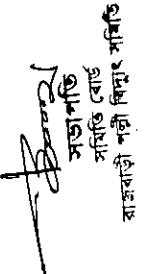 সভাপতি
সমিতি বোর্ড
রাজবাড়ী পল্লী বিদ্যুৎ সমিতি